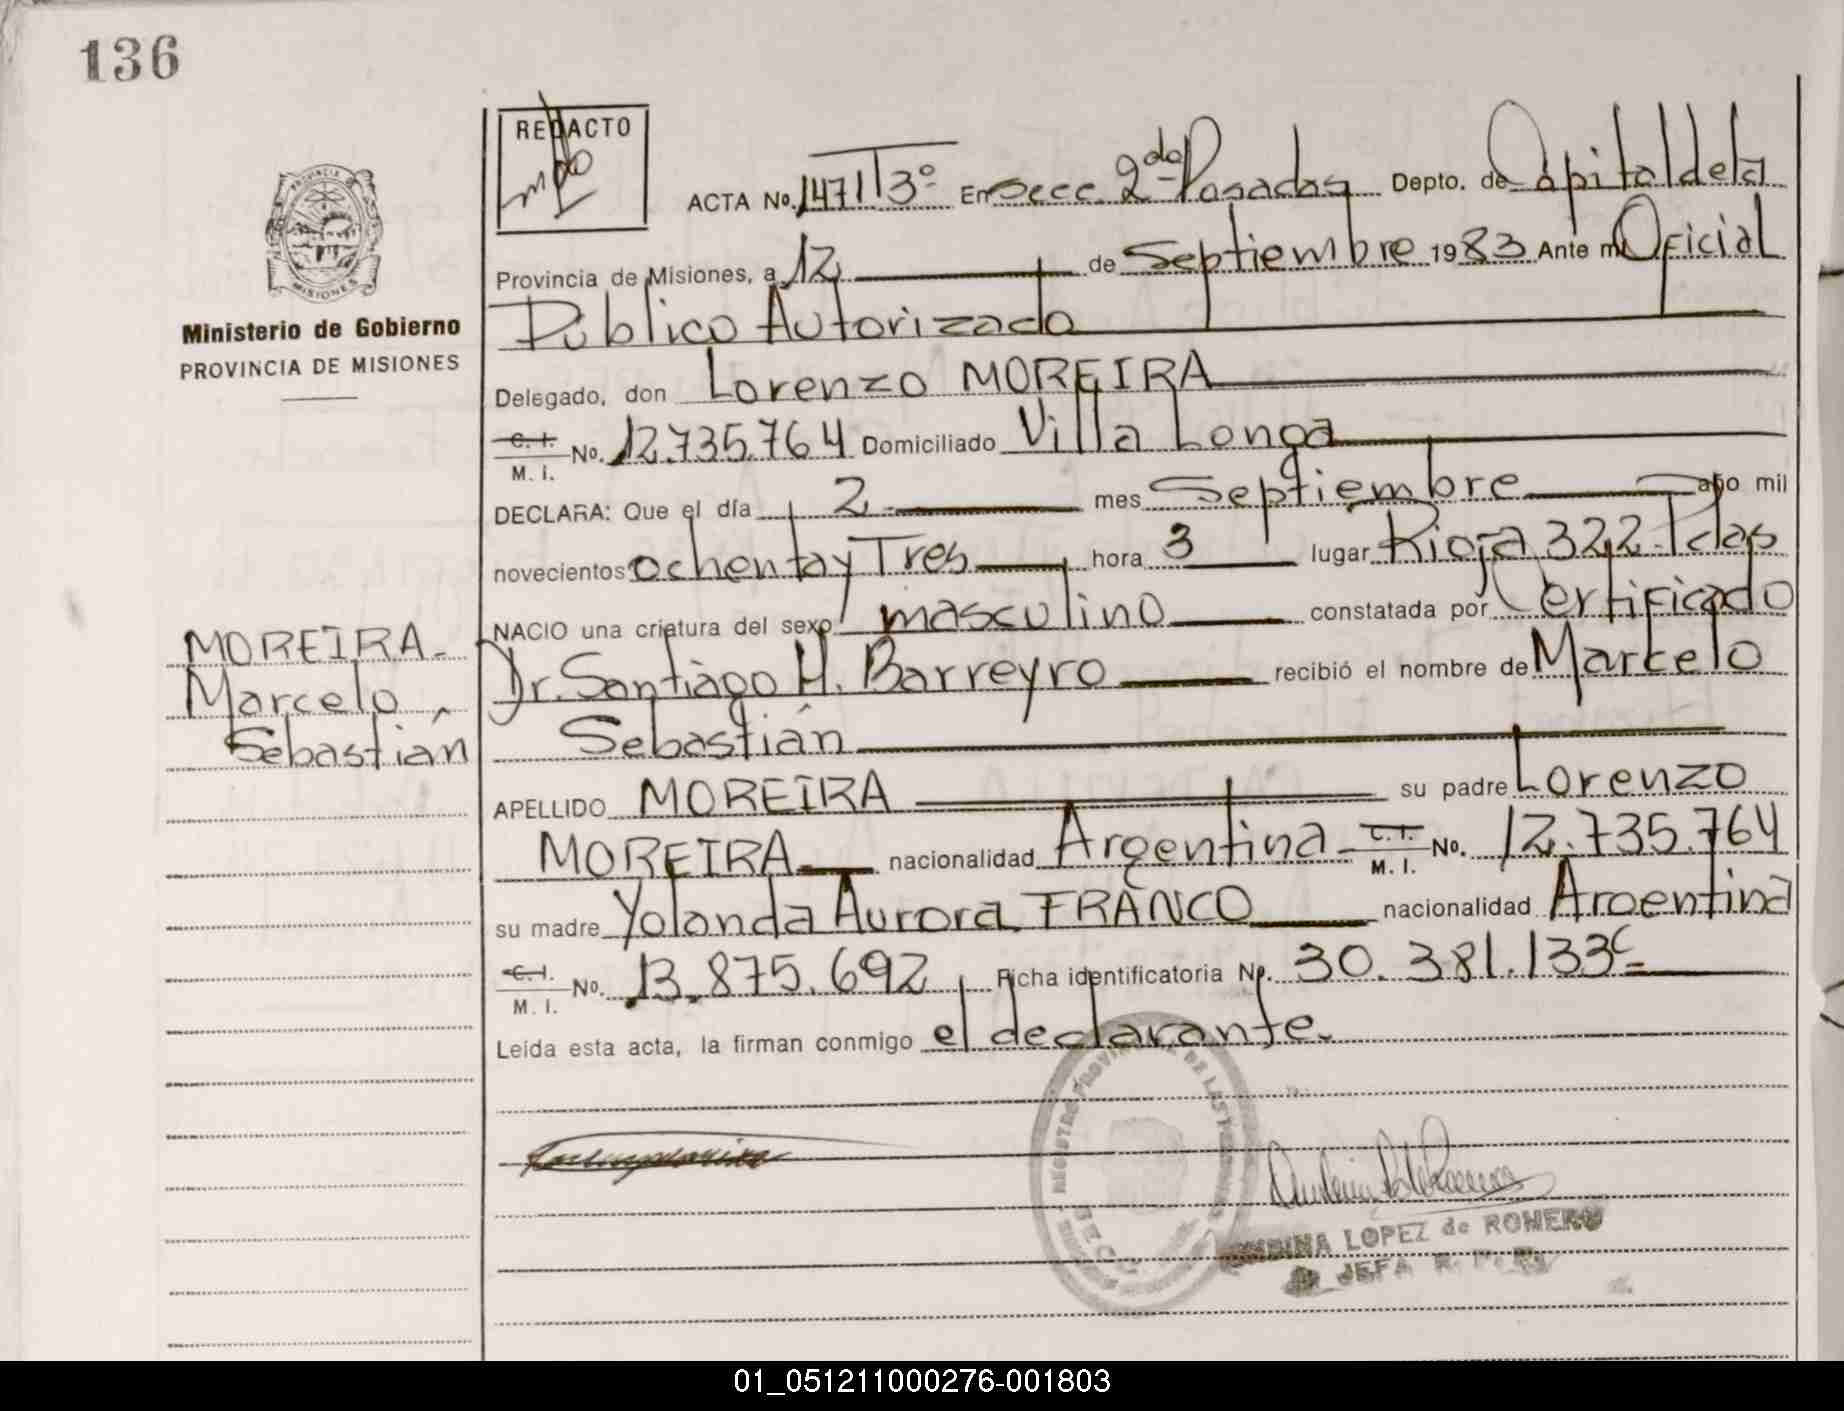 136
REDACTO
ACTA No. 1471 T 3º En Secc. 2da Posadas Depto. de Capital de la
Provincia de Misiones, a 12 de Septiembre 1983 Ante mi Oficial
Público Autorizado
Delegado, don Lorenzo MOREIRA
C. I. No. 12.735.764 Domiciliado Villa Longa
M. I.
DECLARA: Que el día 2 mes Septiembre año mil
novecientos ochenta y Tres hora 3 lugar Rioja 322 Pdas
NACIO una criatura del sexo masculino constatada por Certificado
Dr. Santiago H. Barreyro recibió el nombre de Marcelo
Sebastián
APELLIDO MOREIRA su padre Lorenzo
MOREIRA nacionalidad Argentina C. I. No. 12.735.764
M. I.
su madre Yolanda Aurora FRANCO nacionalidad Argentina
C. I. No. 13.875.692 Ficha identificatoria No. 30.381.133
M. I.
Leída esta acta, la firman conmigo el declarante.
PROVINCIA DE
MISIONES
Ministerio de Gobierno
PROVINCIA DE MISIONES
MOREIRA
Marcelo
Sebastián
REGISTRO PROVINCIAL DE LAS PERSONAS
SECC
LOPEZ de ROMERO
JEFA R. P. P.
01_051211000276-001803